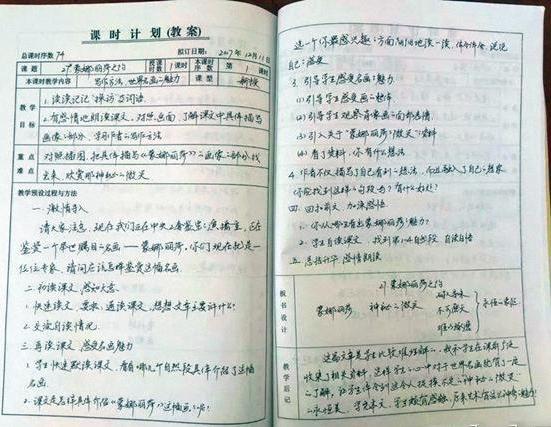 课时计划(教案)
总课时序数 74 拟订日期: 2017年12月11日
课题 27*蒙娜丽莎之约 教学时数 1课时 本课时序数 第1课时
本课时教学内容 写作方法,世界名画的魅力 课型 新授
教学目标
1. 读读记记"探访"等词语
2. 有感情地朗读课文,对照画面,了解课文中具体描写
画像的部分,学习作者的写作方法
重点难点
对照插图,把具体描写《蒙娜丽莎》画像的部分找
出来,欣赏那神秘的微笑
教学预设过程与方法
一. 激情导入
请大家注意,现在我们正在中央 鉴宝 演播室,正在
鉴赏一个举世瞩目的名画——蒙娜丽莎。你们现在就是一
位位专家,请问应该怎样鉴赏这幅名画。
二. 初读课文,感知大意
1. 快速读文,要求:通读课文,想想文章主要讲什么?
2. 交流自读情况
三. 再读课文,感受名画魅力
1. 学生快速默读课文,看看哪几个自然段具体介绍了这幅
名画
2. 课文是怎样具体介绍《蒙娜丽莎》这幅画的呢!
选一个你最感兴趣的方面 地读一读,体会体会,说说
自己的感受
3. 引导学生感受名画的魅力
(1) 引导学生感受画的整体
(2) 引导学生观察背景画面部表情
(3) 引入关于"蒙娜丽莎的微笑"资料
(4) 看了资料,你有什么想法
4. 作者不仅描写了自己看到的想法,而且融入了自己的想象
你能找到这样的句段吗?有什么好处?
四. 回扣前文 加深感悟
1. 你从哪里看出蒙娜丽莎的魅力?
2. 学生自读课文,找到第八自然段 自读自悟
五. 总结升华 感情朗读
板书设计
27 蒙娜丽莎之约
蒙娜丽莎 神秘的微笑
耐人寻味
不可磨灭
难以捉摸
永恒的象征
教学后记
这篇文章是学生比较难理解的,我和学生在课前了
收集了相关资料,这样学生心中对于世界名画就有了一定
的了解,让学生体会到这令人难以捉摸的神秘的微笑
的永恒美,学完本文,学生颇有感触,原来艺术有这么神奇的魅力!